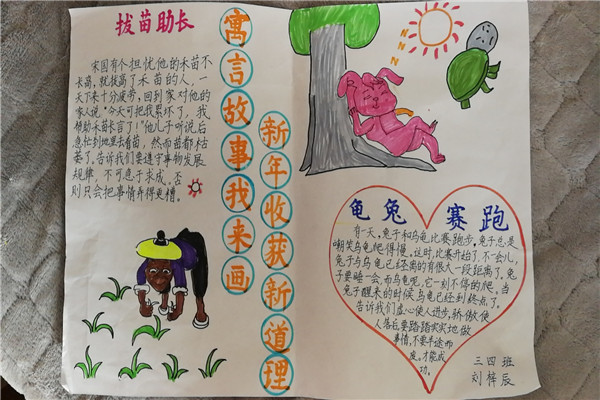 拔苗助长
宋国有个担忧他的禾苗不
长高,就拔高了禾苗的人,一
天下来十分疲劳,回到家对他的
家人说:"今天可把我累坏了,我
帮助禾苗长高了!"他儿子听说后
急忙到地里去看苗,然而苗都枯
萎了。告诉我们要遵守事物发展
规律,不可急于求成。否
则只会把事情弄得更糟。
寓言故事我来画
新年收获新道理
龟兔赛跑
有一天,兔子和乌龟比赛跑步,兔子总是
嘲笑乌龟爬得慢。这时,比赛开始了。不一会儿,
兔子与乌龟已经离的有很大一段距离了。兔
子要睡一会,而乌龟呢,它一刻不停的爬。当
兔子醒来的时候乌龟已经到终点了。
告诉我们虚心使人进步,骄傲使
人落后,要踏踏实实地做
事情,不要半途而
废。才能成
功。
三四班
刘梓辰